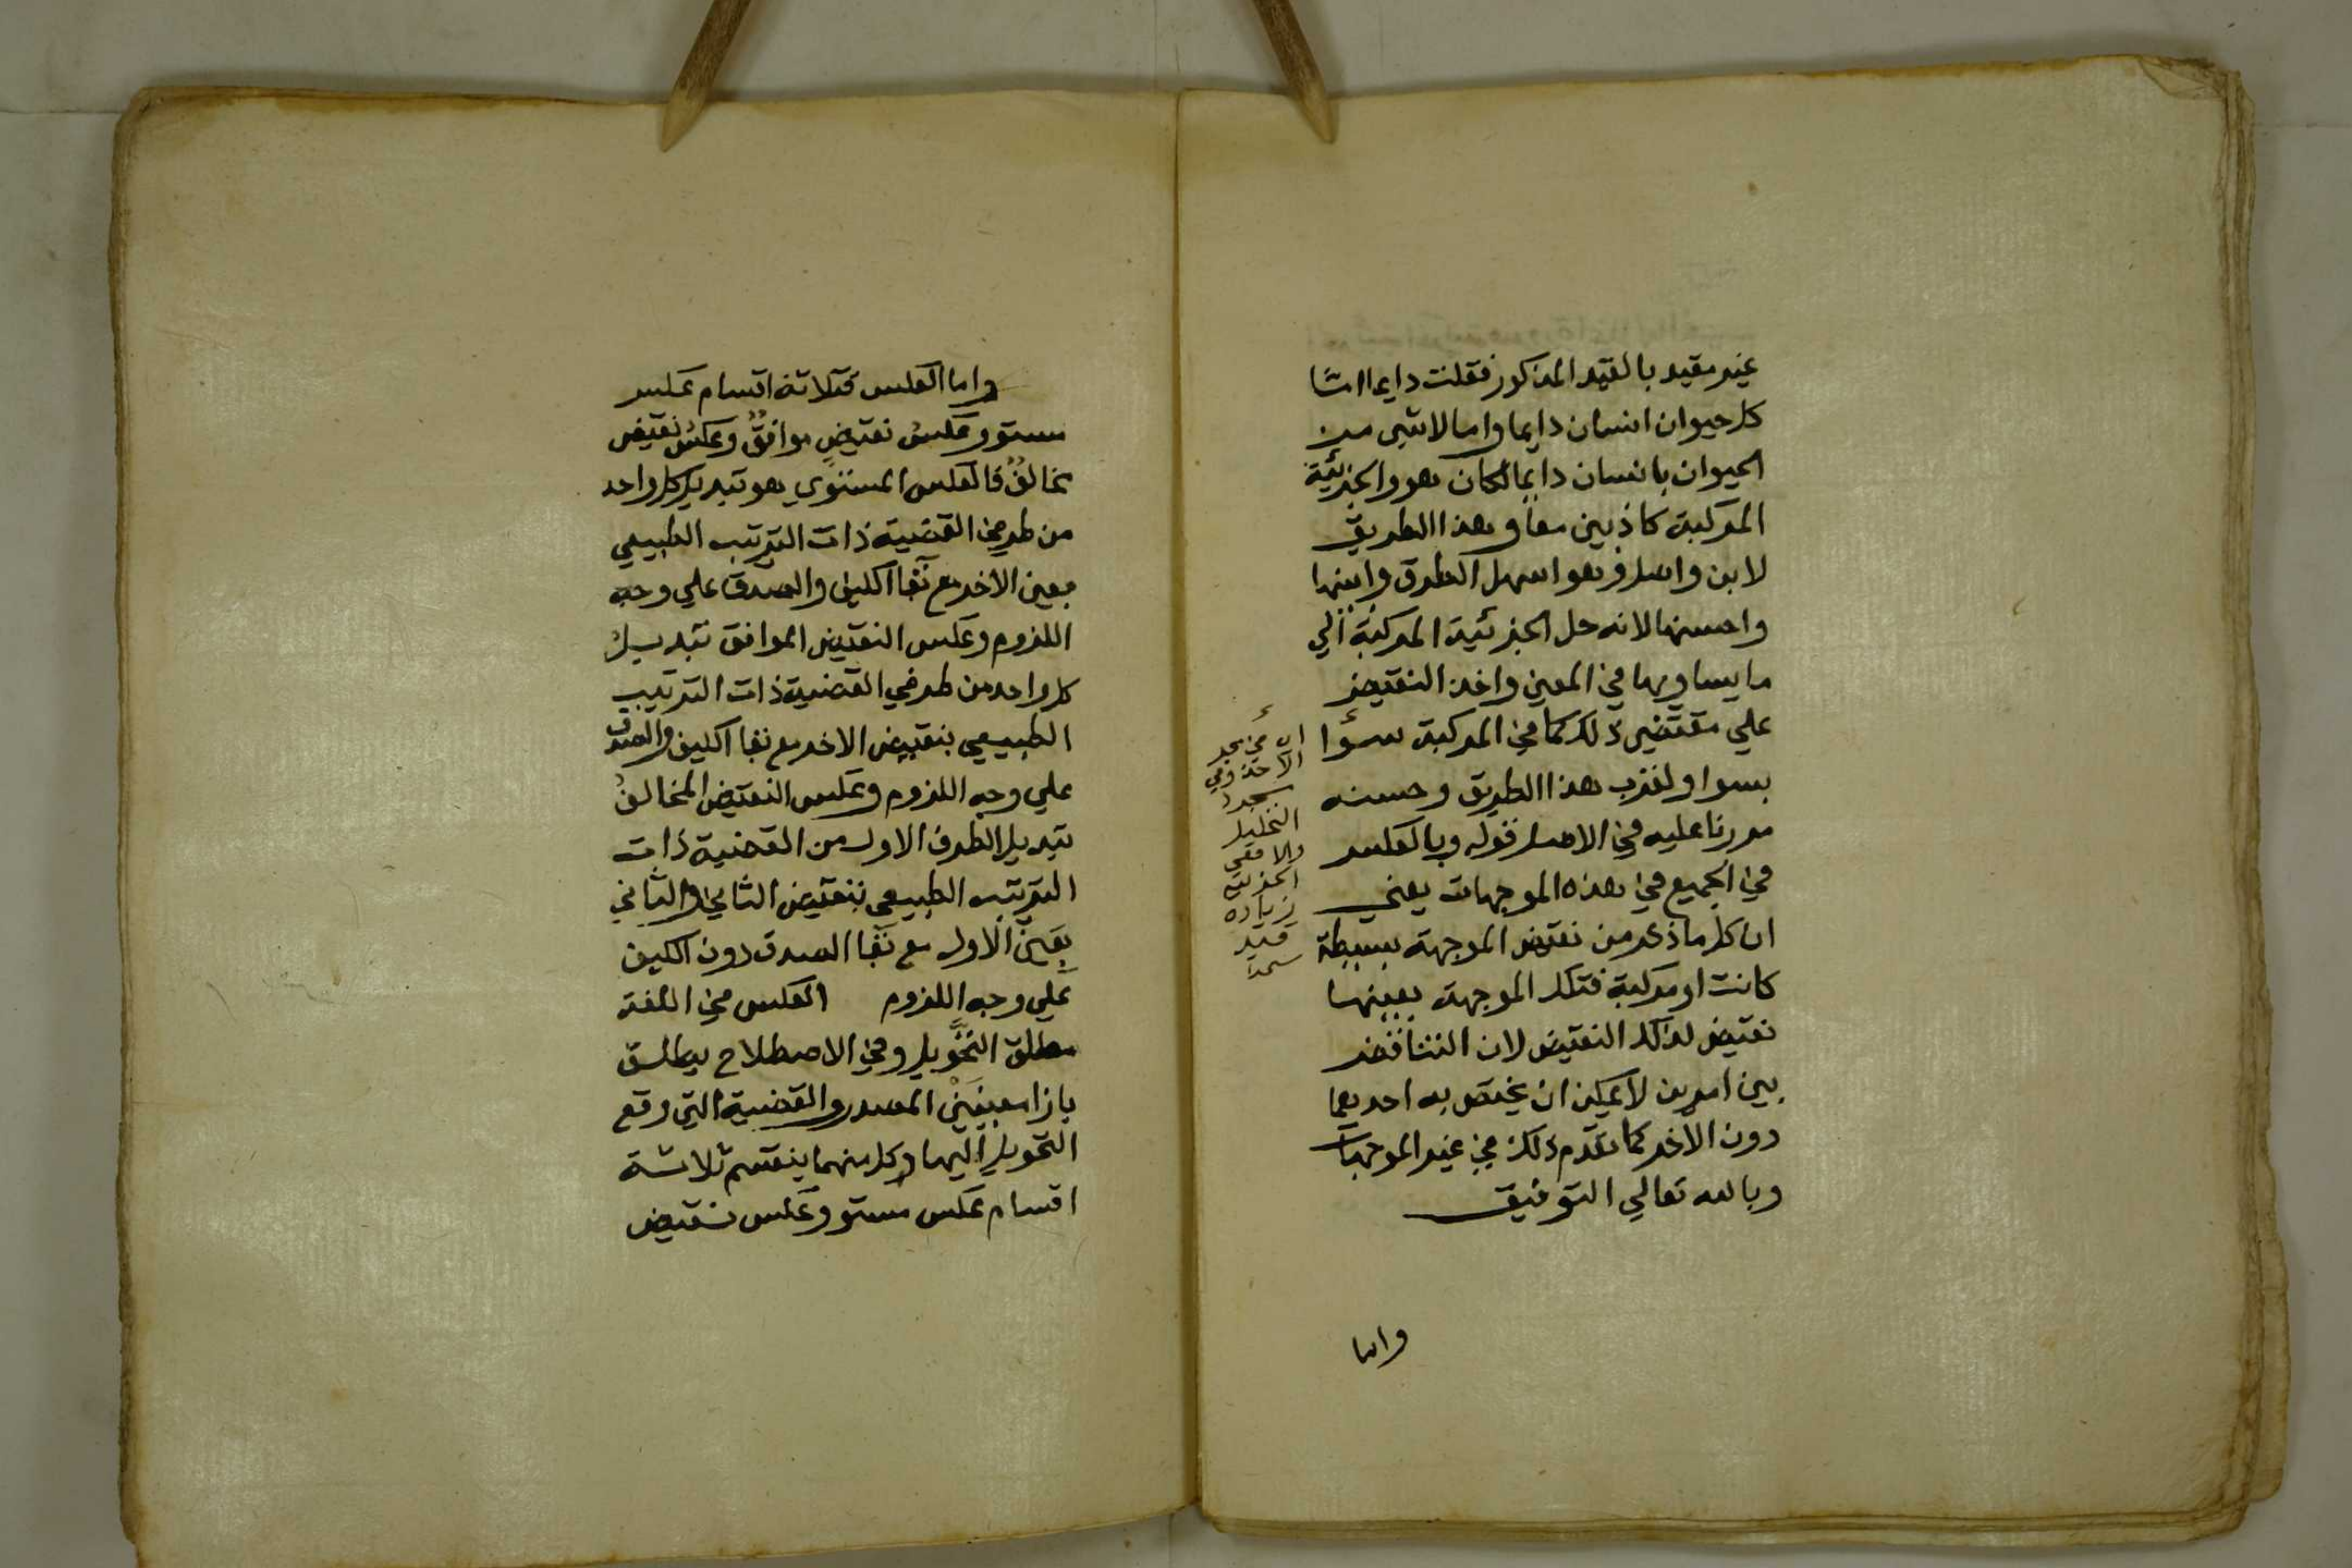 غير مقيد بالقيد المذكور فقلت دايما اما
كل حيوان انسان دايما واما لا شي من
الحيوان بانسان دايما لكان هو والجزئية
المركبة كاذبين معا وهذا الطريق
لابن واصل وهو اسهل الطرق وابينها
واحسنها لانه حل الجزئية المركبة الي
ما يساويها في المعني واخذ النقيض
علي مقتضي ذلك كما في المركبة سوا
بسوا ولقرب هذا الطريق وحسنه
مررنا عليه في الاصل قوله وبالعكس
في الجميع في هذه الموجهات يعني
ان كل ما ذكر من نقيض الموجهة بسيطة
كانت او مركبة فتلك الموجهة بعينها
نقيض لذلك النقيض لان التناقض
بين امرين لا يمكن ان يختص به احدهما
دون الاخر كما تقدم ذلك في غير الموجهات
وبالله تعالي التوفيق
التحليل
والا ففي
الجزئية
زيادة
قيد
واما
واما العكس فثلاثة اقسام عكس
مستو وعكس نقيض موافق وعكس نقيض
مخالف فالعكس المستوي هو تبديل كل واحد
من طرفي القضية ذات الترتيب الطبيعي
بعين الاخر مع بقا الكيف والصدق علي وجه
اللزوم وعكس النقيض الموافق تبديل
كل واحد من طرفي القضية ذات الترتيب
الطبيعي بنقيض الاخر مع بقا الكيف والصدق
علي وجه اللزوم وعكس النقيض المخالف
تبديل الطرف الاول من القضية ذات
الترتيب الطبيعي بنقيض الثاني والثاني
بعين الاول مع بقا الصدق دون الكيف
علي وجه اللزوم العكس في اللغة
مطلق التحويل وفي الاصطلاح يطلق
بازا معنيين المصدر والقضية التي وقع
التحويل اليها وكل منهما ينقسم ثلاثة
اقسام عكس مستو وعكس نقيض